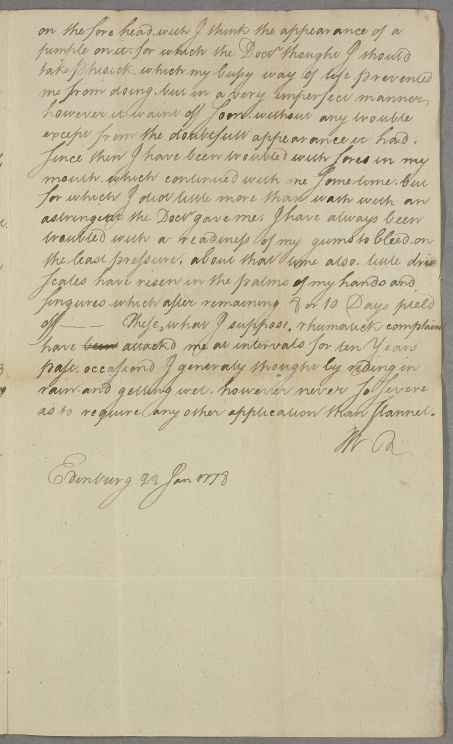 on the fore head with I think the appearance of a
pimple on it. for which the Docr. thought I should
take Phisick. which my busy way of life prevented
me from doing. but in a very imperfect manner,
however it waint off soon. without any trouble
except from the doubtfull appearance it had.
Since then I have been troubled with sores in my
mouth. which continued with me some time. but
for which I did little more than wash with an
astringent the Docr. gave me. I have always been
troubled with a readiness of my gums to bleed. on
the least pressure. about that time also. little drie
scales have risen in the palms of my hands and
fingures which after remaining 8 or 10 Days pield
off —— These, what I suppose. rhumatick complaints
have been attackd me at intervals for ten Years
past. occasiond I generaly thought by riding in
rain. and getting wet. however never so severe
as to require any other application than flannel.
W R
Edinburg 22 Jan 1778